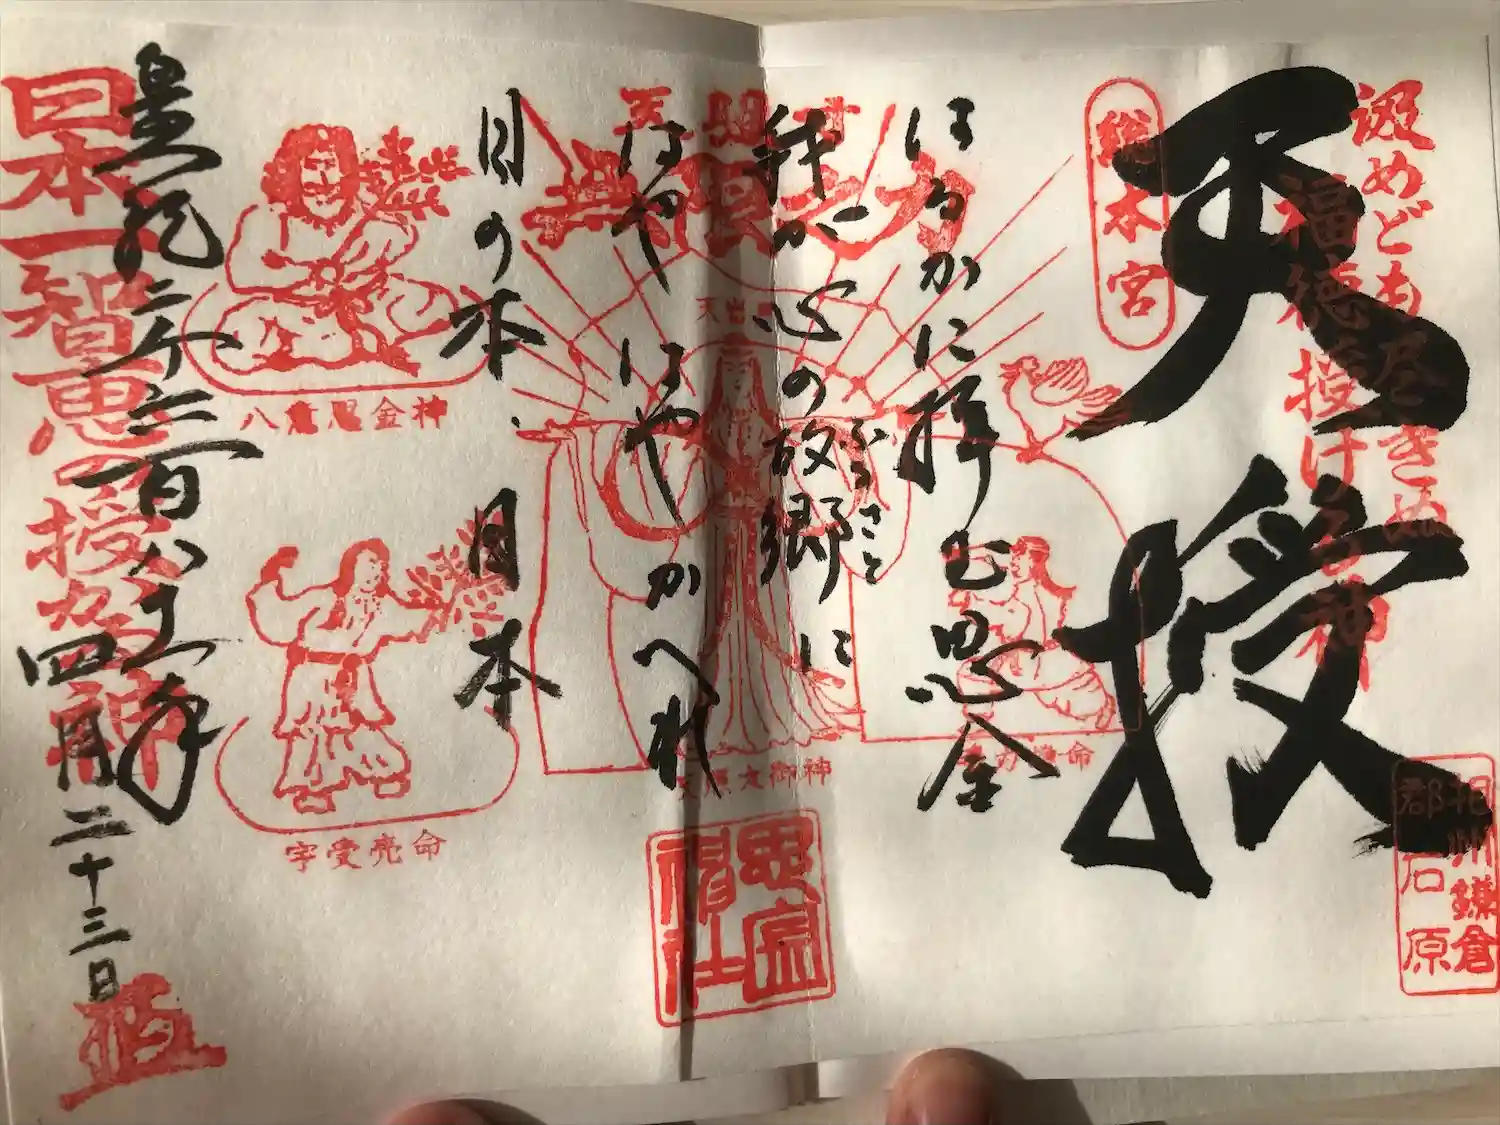 汲めども尽きぬ
福徳授ける神
天授
総本宮
相州鎌倉
郡石原
はるかに拝む思金
ふるさと
我が心の故郷に
はやはやかへれ
日の本、日本
天照大御神
思金神社
八意思金神
宇受売命
皇紀二千六百八十年
四月二十三日
日本一智恵の授かる神